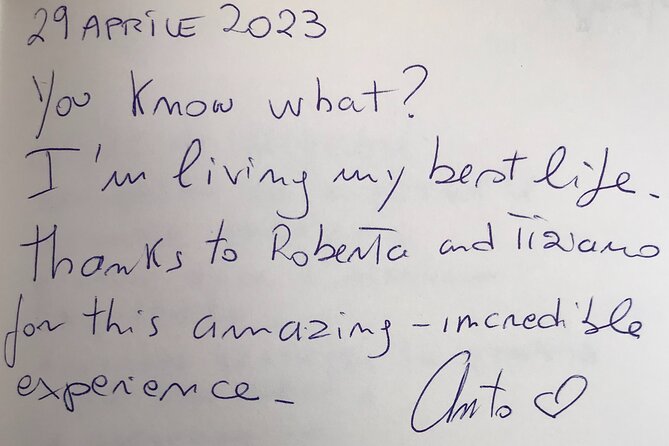 29 APRILE 2023
You know what?
I'm living my best life.
thanks to Roberta and Tiziano
for this amazing - incredible
experience -
Anto ♡